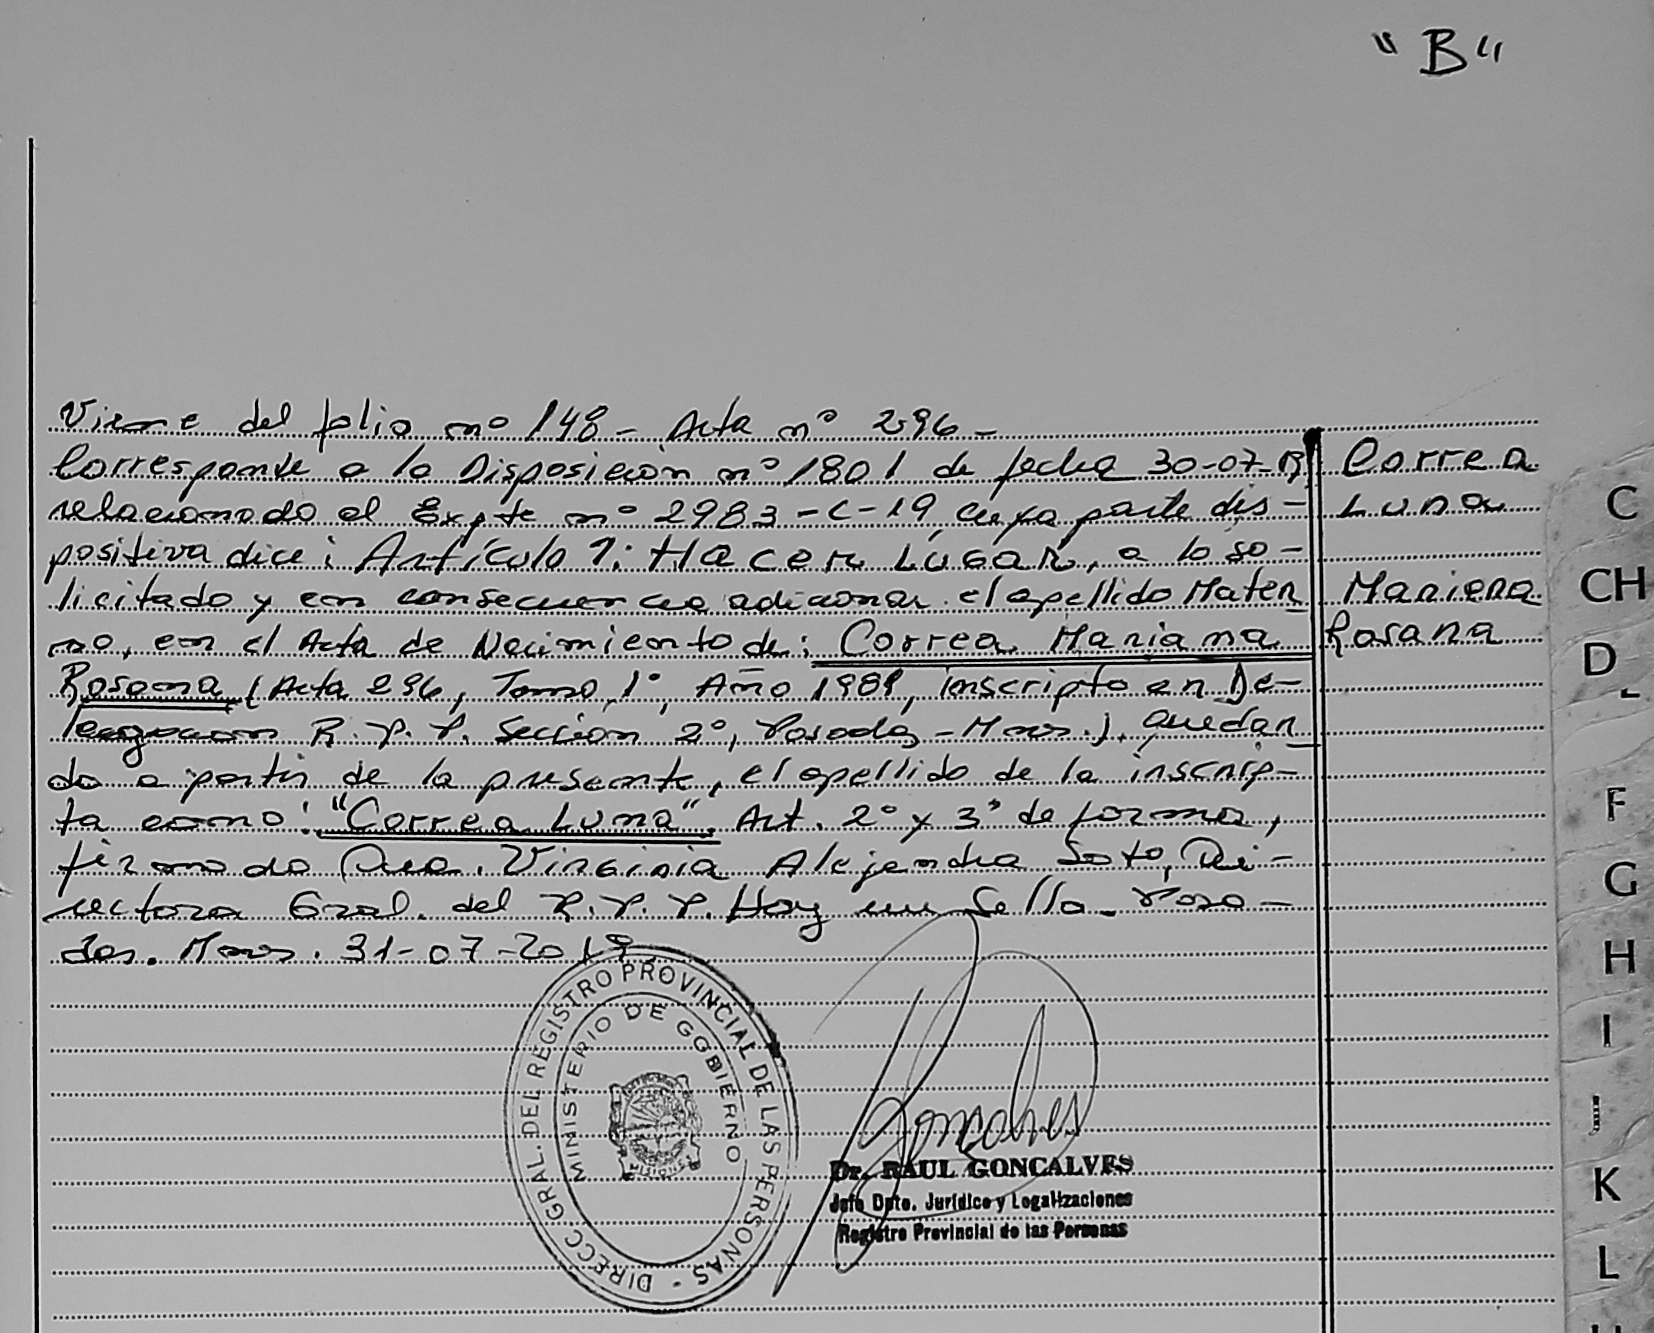 "B"
Viene del folio nº 148 - Acta nº 296 -
Corresponde a la Disposición nº 1801 de fecha 30-07-19
relacionado al Expte nº 2983-C-19 cuya parte dis-
positiva dice: Artículo 1: HACER LUGAR, a lo so-
licitado y en consecuencia adicionar el apellido Mater
no, en el Acta de Nacimiento de: Correa Mariana
Rosana (Acta 296, Tomo 1º, Año 1989, inscripto en De-
legación R.P.P. Sección 2º, Posadas - Mnes.), quedan
do a partir de la presente, el apellido de la inscrip-
ta como: "Correa Luna". Art. 2º y 3º de forma,
firmado Dra. Virginia Alejandra Soto, Di-
rectora Gral. del R.P.P. Hay un Sello - Posa-
das. Mnes. 31-07-2019
Correa
Luna
Mariana
Rosana
DIRECC. GRAL. DEL REGISTRO PROVINCIAL DE LAS PERSONAS -
MINISTERIO DE GOBIERNO
MISIONES
Dr. RAUL GONCALVES
Jefe Dpto. Jurídico y Legalizaciones
Registro Provincial de las Personas
C
CH
D
F
G
H
I
K
L